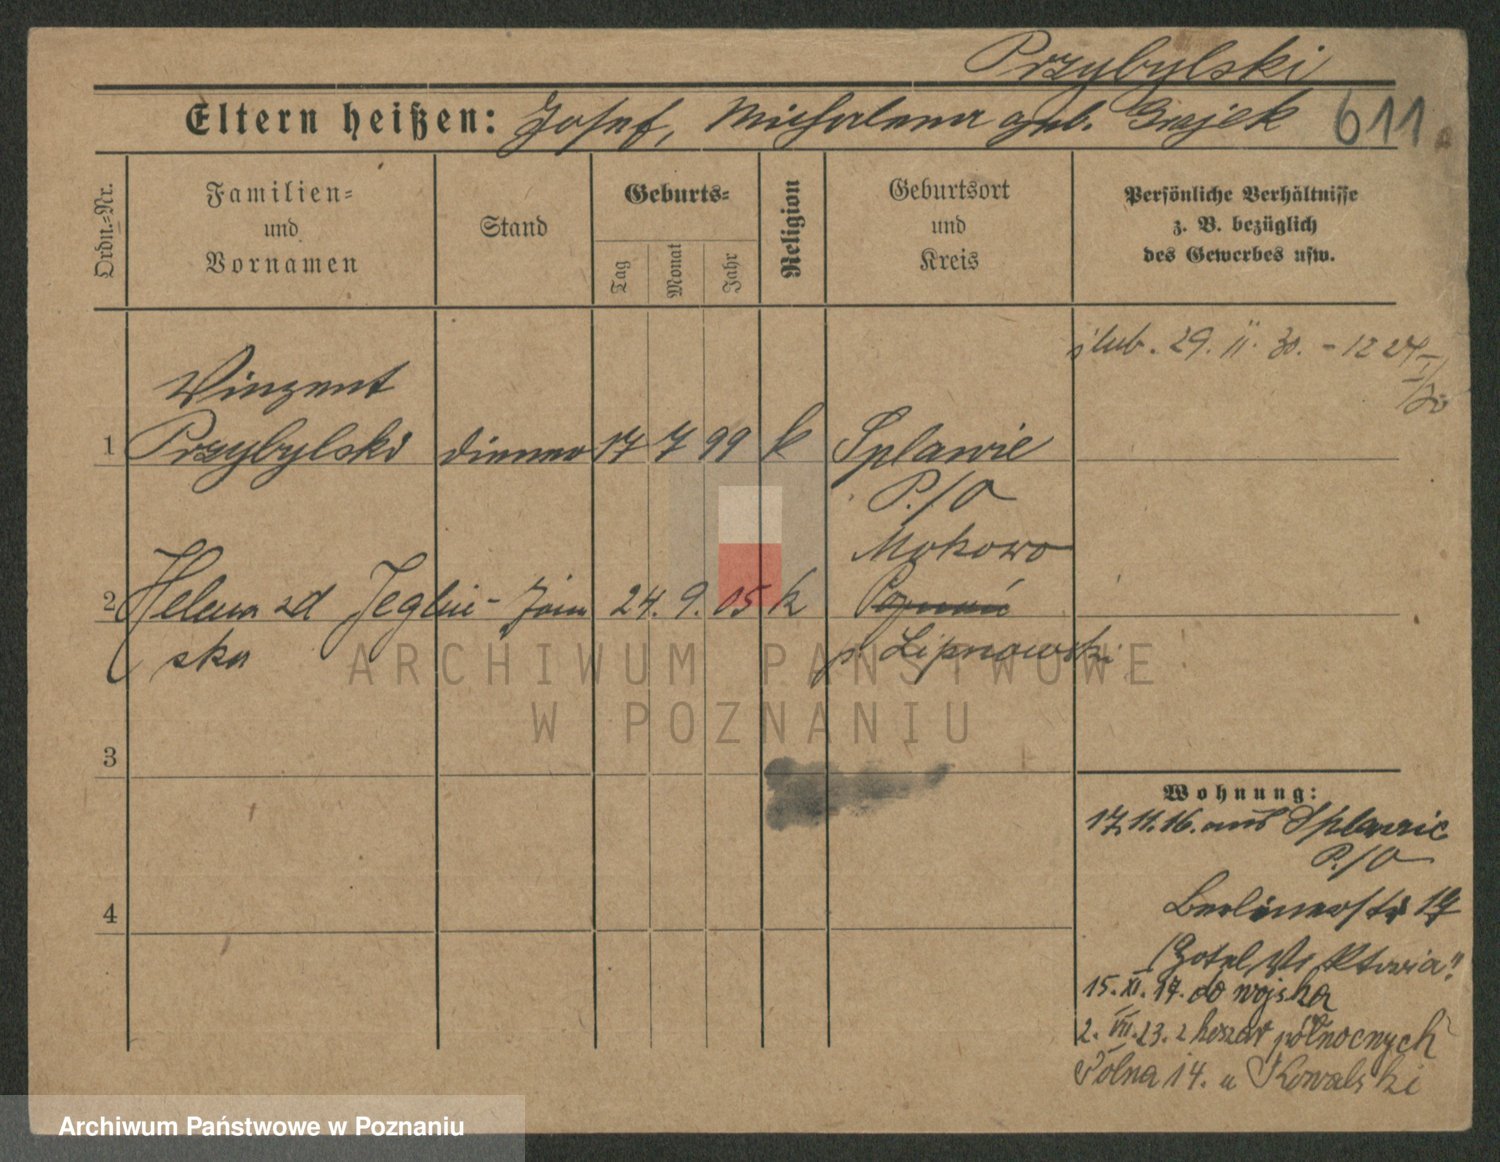 Przybylski
Eltern heißen: Josef, Michalena geb. Grajek 611
Ordn.=Nr.
Familien=
und
Vornamen
Stand
Geburts=
Tag
Monat
Jahr
Religion
Geburtsort
und
Kreis
Persönliche Verhältnisse
z. B. bezüglich
des Gewerbes usw.
ślub. 29. II. 30. - 12
Vinzent
1 Przybylski Diener 17 7 99 k Splawie
P./O
Mokowo
2 Helena zd Jeglic- 24. 9. 05 k Poznań
ska p. Lipnowski
3
4
Wohnung:
17.11.16. aus Splawie
P./O
Berlinerstr 17
(Hotel Viktoria"
15. XI. 17. do wojska
2. VII. 23. z koszar północnych
Polna 14. u Kowalski
ARCHIWUM PAŃSTWOWE
W POZNANIU
Archiwum Państwowe w Poznaniu